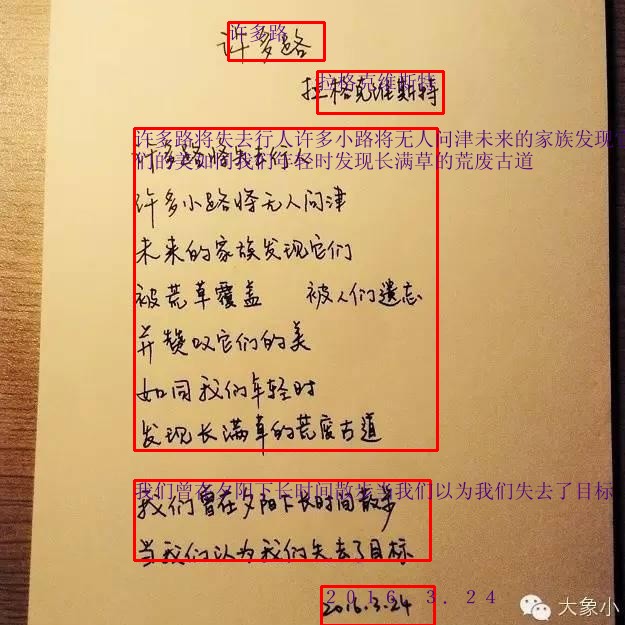 许多路
许多路
拉格克维斯特
拉格克维斯特
许多路将失去行人许多小路将无人问津未来的家族发现
们的美如同我们年轻时发现长满草的荒废古道
许多路将失去行人
许多小路将无人问津
未来的家族发现它们
被荒草覆盖 被人们遗忘
并赞叹它们的美
如同我们年轻时
发现长满草的荒废古道
我们曾在夕阳下长时间散步当我们以为我们失去了目标
我们曾在夕阳下长时间散步
当我们认为我们失去了目标
2016 3.24
2016.3.24
大象小